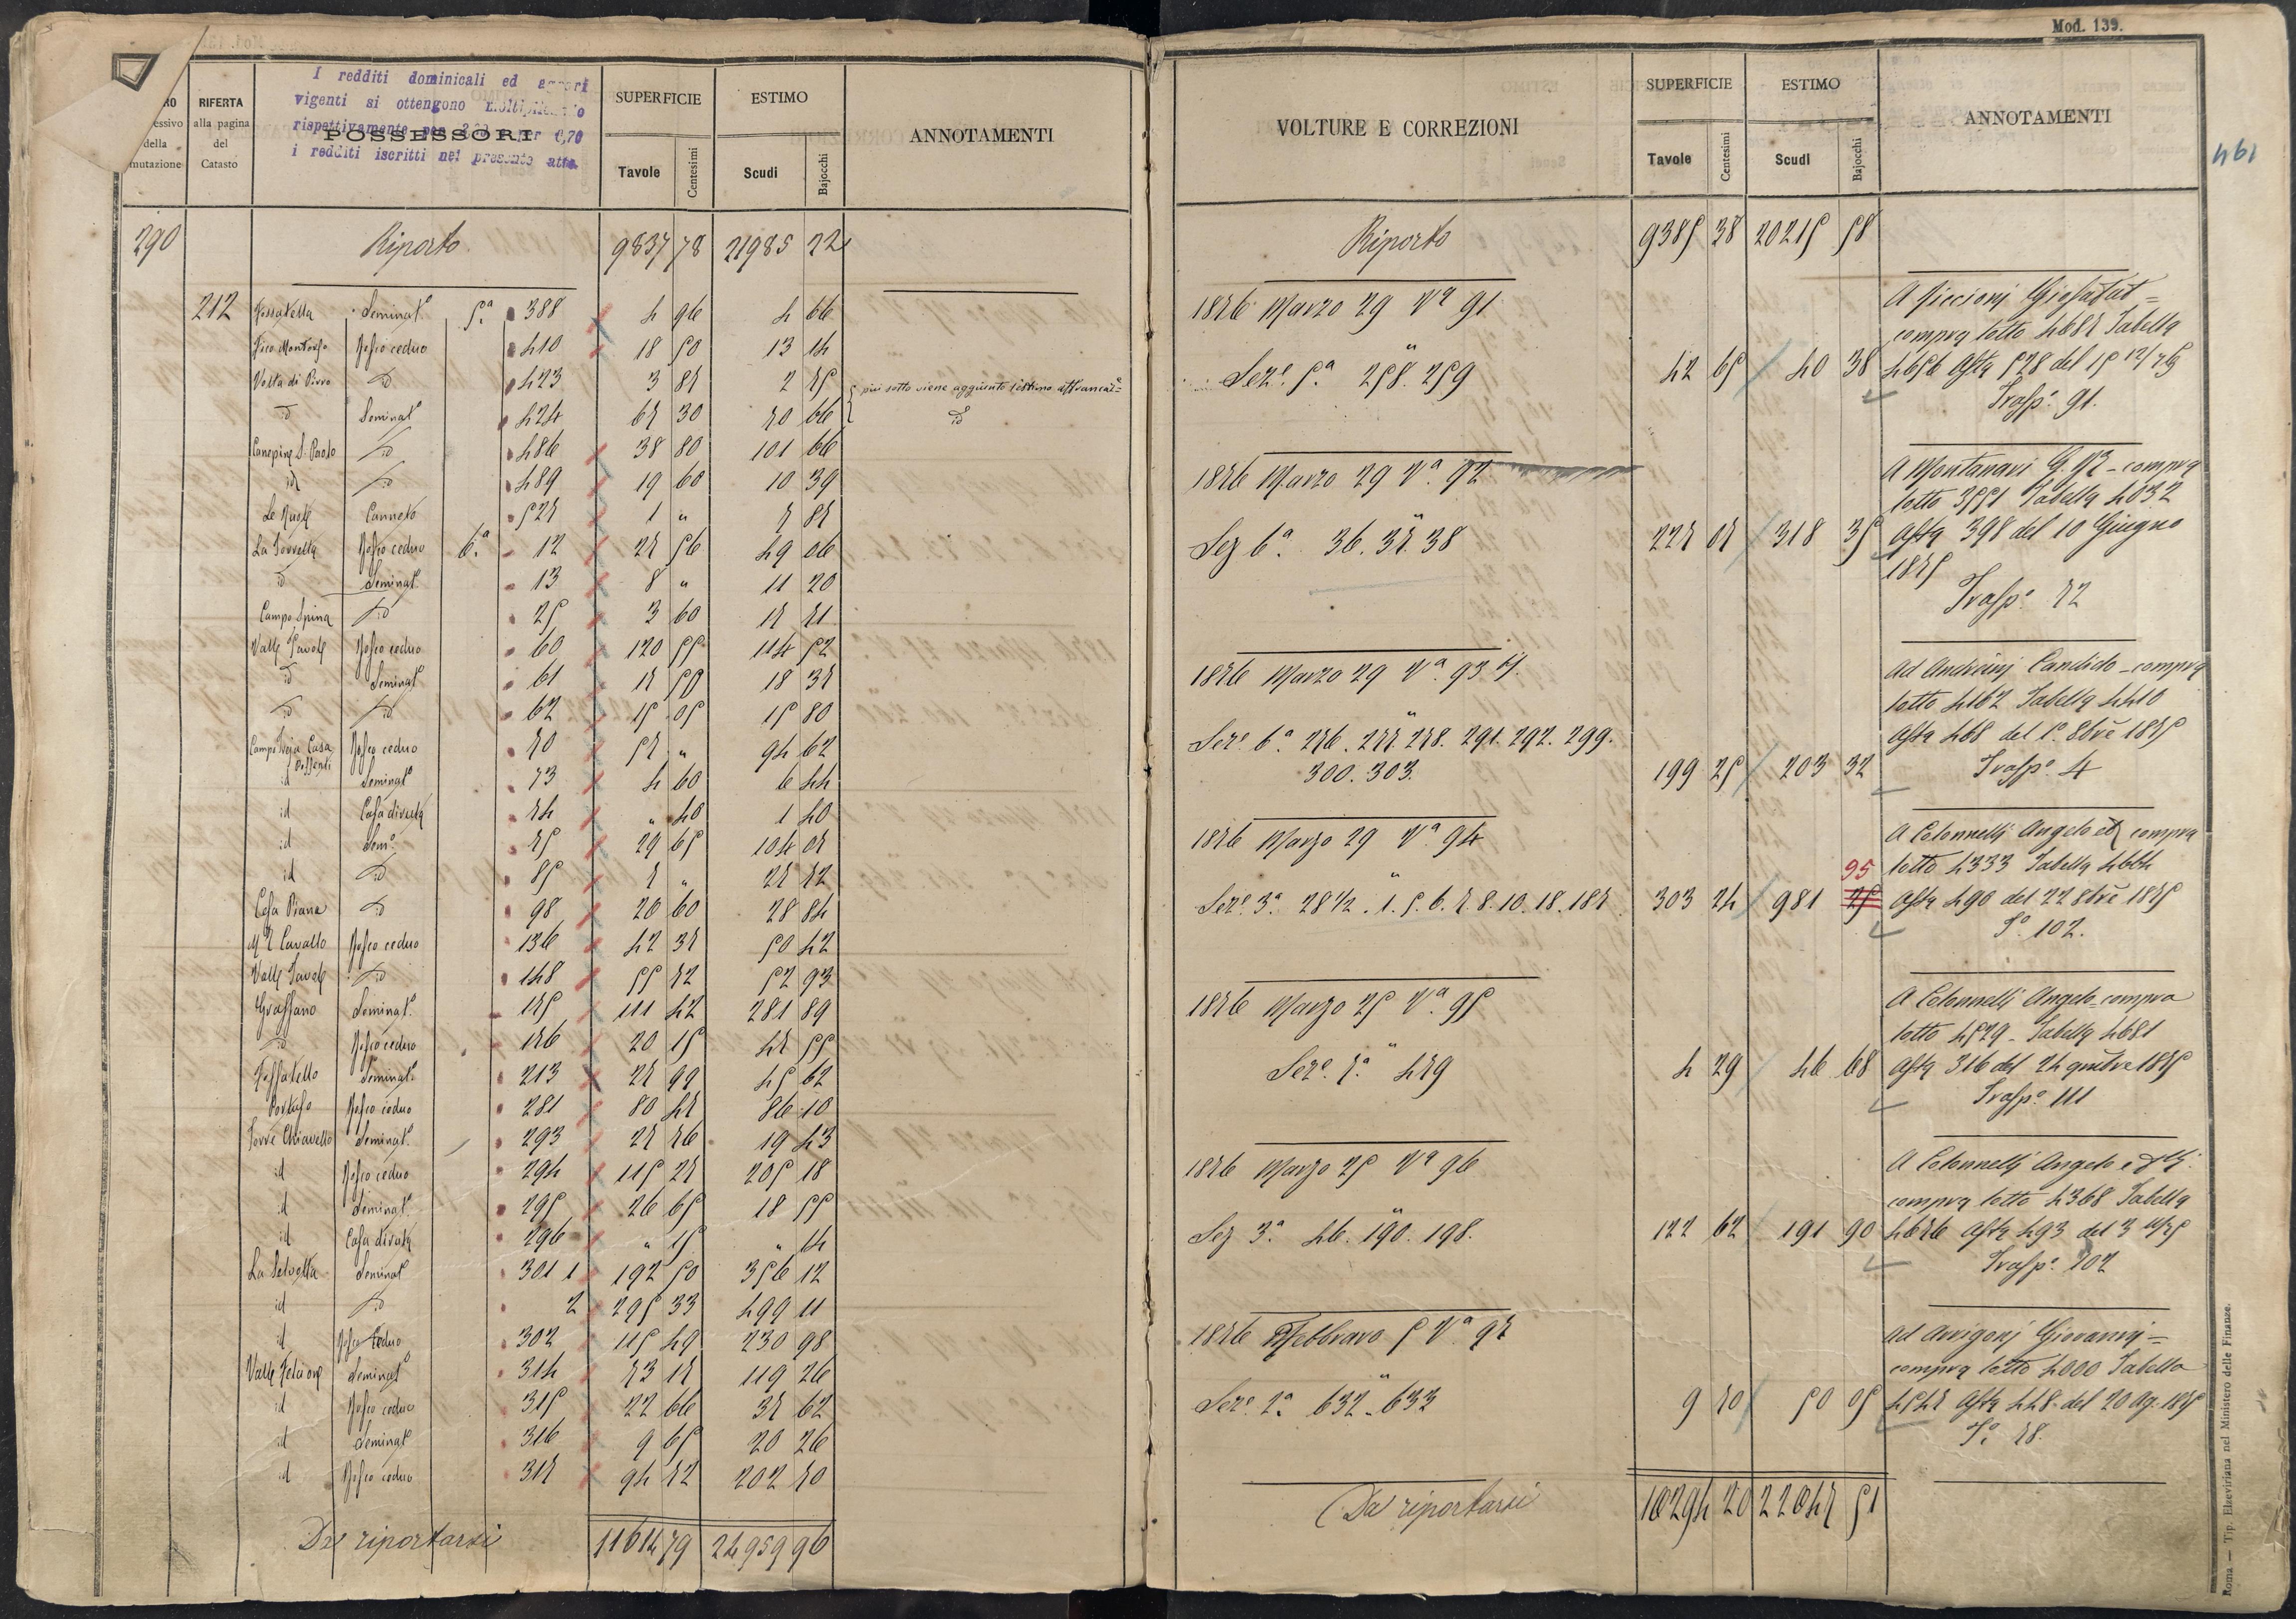 Mod. 139.
461
I redditi dominicali ed agrari
vigenti si ottengono moltiplicando
rispettivamente per er 0,70
i redditi iscritti nel presente atto.
RO
essivo
della
mutazione
RIFERTA
alla pagina
del
Catasto
POSSESSORI
SUPERFICIE
Tavole Centesimi
ESTIMO
Scudi Bajocchi
ANNOTAMENTI
290 Riporto 9837 78 21985 22
212 Fossatella Seminat.o 5.a 388 4 96 4 66
Bosco ceduo 410 18 50 13 14
Volta di Pirro id 423 3 87 2 75 più sotto viene aggiunto l'estimo affrancat.o
id Seminat.o 424 67 30 70 66 id
Canepine S. Paolo id 486 38 80 101 66
id id 489 19 60 10 39
Canneto 527 1 " 7 87
La Torretta Bosco ceduo 6.a 12 27 56 49 06
id Seminat.o 13 8 " 11 20
Campo Spina id 25 3 60 17 71
Valle Tavole Bosco ceduo 60 120 55 114 52
id Seminat.o 61 17 50 18 37
id id 62 15 05 15 80
Campo Casa Bosco ceduo 70 57 " 94 62
id Seminat.o 73 4 60 6 44
id Casa diruta 74 " 40 1 40
id Sem.o 75 29 65 104 07
id id 85 7 " 27 72
Cesa Piana id 98 20 60 28 84
Cavallo Bosco ceduo 136 42 37 50 42
Valle Tavole id 148 55 72 52 93
Graffano Seminat.o 175 111 42 281 89
id Bosco ceduo 176 20 15 47 55
Fossatello Seminat.o 213 27 99 45 62
Bosco ceduo 281 80 47 86 10
Torre Chiavello Seminat.o 293 27 76 19 43
id Bosco ceduo 294 115 27 205 18
id Seminat.o 295 26 65 18 55
id Casa diruta 296 " 15 " 14
La Selvetta Seminat.o 301 1 192 50 356 12
id id 2 295 33 499 11
id Bosco ceduo 302 115 49 230 98
Seminat.o 314 73 17 119 26
id Bosco ceduo 315 22 66 37 62
id Seminat.o 316 9 65 20 26
id Bosco ceduo 317 94 72 202 70
Da riportarsi 11614 79 24959 96
VOLTURE E CORREZIONI
SUPERFICIE
Tavole Centesimi
ESTIMO
Scudi Bajocchi
ANNOTAMENTI
Riporto 9385 38 20215 58
1876 Marzo 29 V.a 91
A Piccioni Giosafat =
compra lotto 4687 Tabella
Sez.e 5.a 258. 259 42 65 40 38 4656 Asta 528 del 15
Trasp.o 91.
1876 Marzo 29 V.a 92
A Montanari compra
lotto 3551 Tabella 4032
Sez 6.a 36. 37. 38 227 07 318 35 Asta 398 del 10 Giugno
1875
Trasp.o 72
1876 Marzo 29 V.a 93
Ad Andreini Candido _ compra
lotto 4162 Tabella 4410
Sez.e 6.a 276. 277. 278. 291. 292. 299. Asta 468 del 1.o 8bre 1875
300. 303. 199 25 203 32 Trasp.o 4
1876 Marzo 29 V.a 94
A Colonnelli Angelo ed compra
95 lotto 4333 Tabella 4664
Sez.e 3.a 28 1/2. 1. 5. 6. 7. 8. 10. 18. 187 303 24 981 25 Asta 490 del 22 8bre 1875
T.o 102.
1876 Marzo 25 V.a 95
A Colonnelli Angelo _ compra
lotto 4529 _ Tabella 4681
Sez.e 7.a 479 4 29 46 68 Asta 316 del 24 9mbre 1875
Trasp.o 111
1876 Marzo 25 V.a 96
A Colonnelli Angelo
compra lotto 4368 Tabella
Sez 3.a 46. 190. 198. 122 62 191 90 4676 Asta 493 del 3
Trasp.o 102
1876 Febbraro 5 V.a 97
Ad Arrigoni Giovanni =
compra lotto 4000 Tabella
Sez.e 2.a 632. 633 9 70 50 05 4547 Asta 448 del 20 Ag. 1875
T.o 78.
Da riportarsi 10294 20 22047 51
Roma — Tip. Elzeviriana nel Ministero delle Finanze.